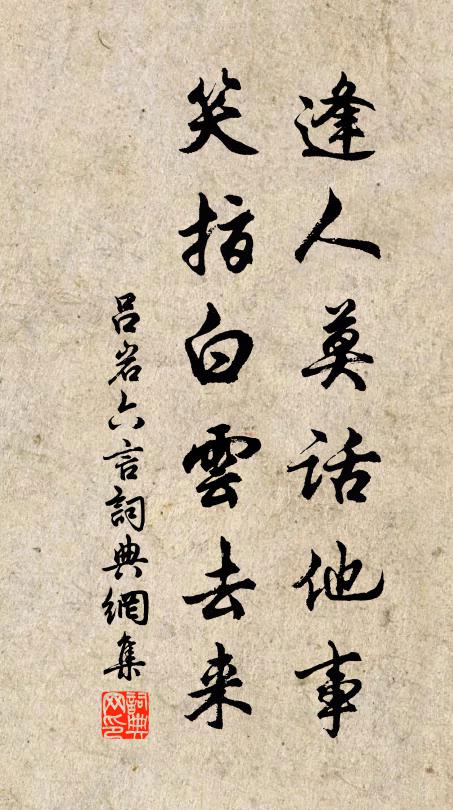 逢人莫話他事
笑指白雲去来
吕岩六言詞典網集
詞典网印